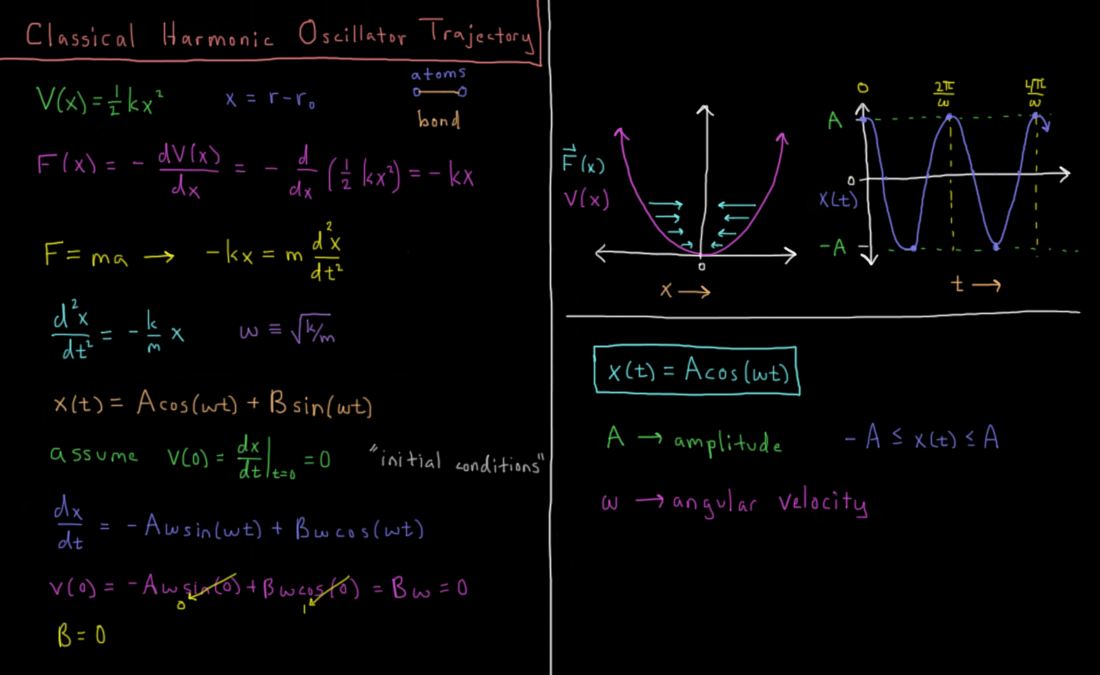 Classical Harmonic Oscillator Trajectory
V(x) = ½kx² x = r - r₀
atoms
bond
F(x) = - dV(x)/dx = - d/dx (½ kx²) = - kx
F = ma → -kx = m d²x/dt²
d²x/dt² = - k/m x ω ≡ √k/m
x(t) = A cos(ωt) + B sin(ωt)
assume v(0) = dx/dt |t=0 = 0 "initial conditions"
dx/dt = - Aω sin(ωt) + Bω cos(ωt)
v(0) = - Aω sin(0) + Bω cos(0) = Bω = 0
0 1
B = 0
F⃗(x)
V(x)
0
x →
0 2π/ω 4π/ω
A
0
x(t)
-A
t →
x(t) = A cos(ωt)
A → amplitude -A ≤ x(t) ≤ A
ω → angular velocity